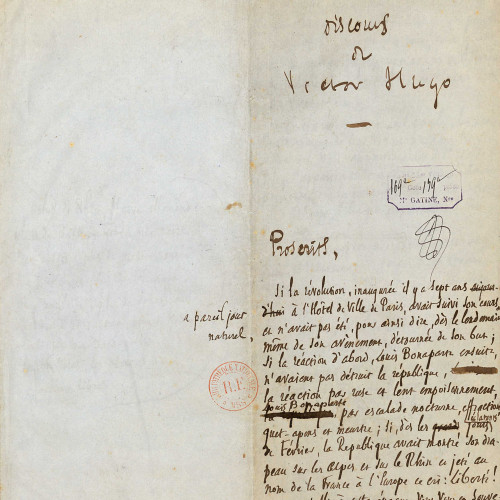 discours
de
Victor Hugo
169e 179e
Me GATINE, Nre
Proscrits,
Si la révolution, inaugurée il y a sept ans
à pareil jour
naturel,
d'hui à l'Hôtel de Ville de Paris, avait suivi son cours
et n'avait pas été, pour ainsi dire, dès le lendemain
même de son avènement, détournée de son but ;
si la réaction d'abord, Louis Bonaparte ensuite,
n'avaient pas détruit la république,
la réaction par ruse et lent empoisonnement,
Louis Bonaparte
par escalade nocturne, effraction,
guet-apens et meurtre ; si, dès les jours
de Février, la République avait montré son dra-
peau sur les Alpes et sur le Rhin et jeté au
nom de la France à l'Europe ce cri : liberté !